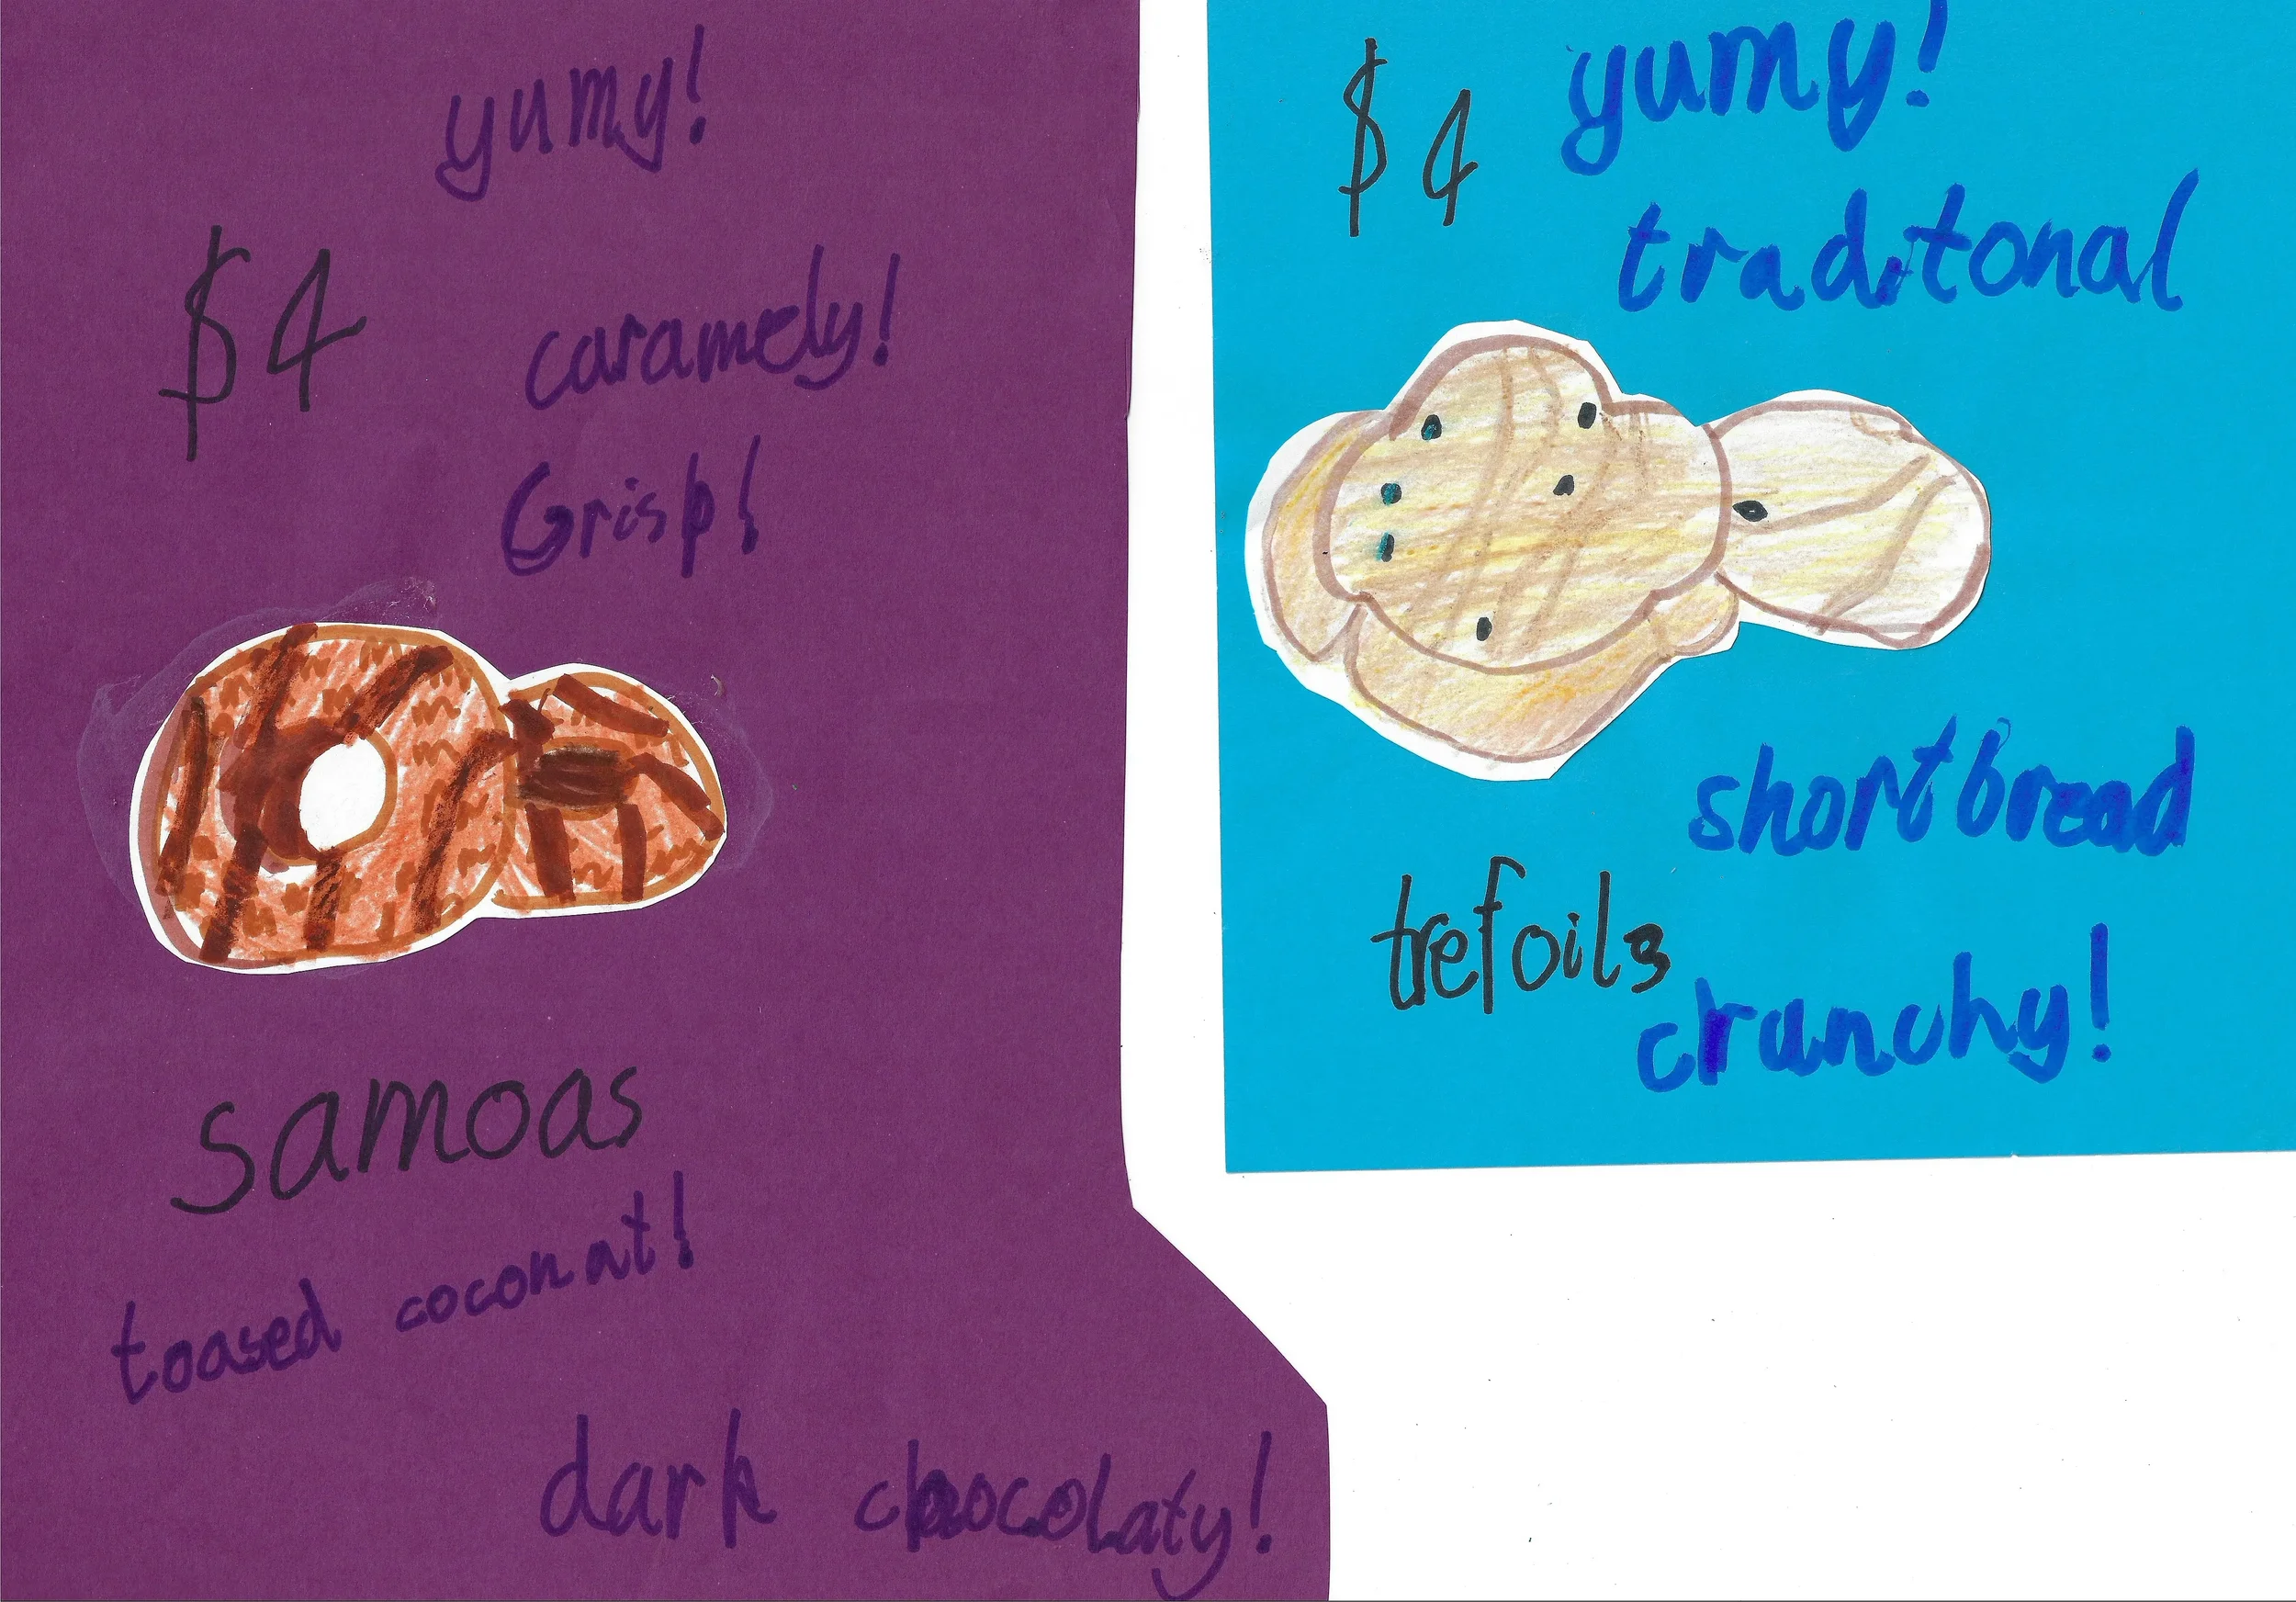 yumy!
$4
caramely!
Crisp!
samoas
toased coconut!
dark chocolaty!
$4
yumy!
traditonal
shortbread
trefoils
crunchy!